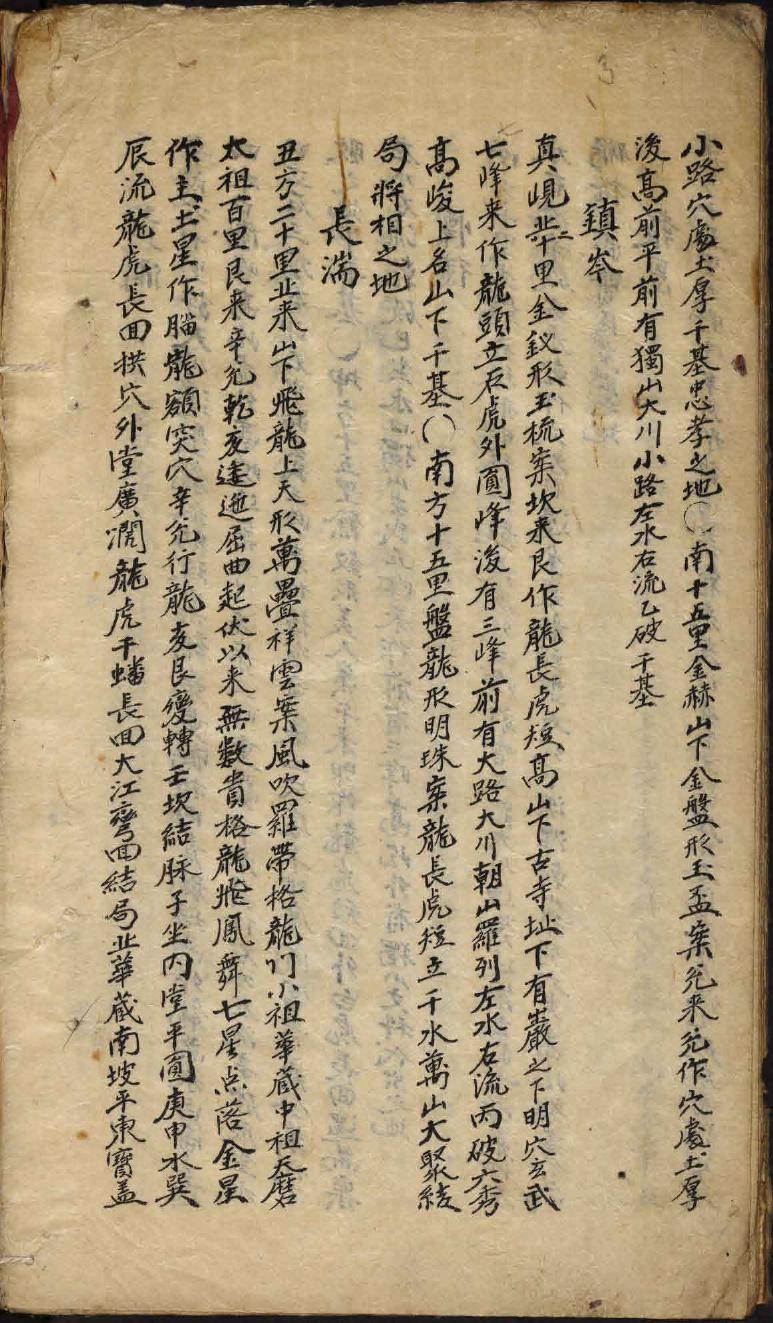 小路穴處土厚千基忠孝之地〇南十五里金赫山下金盤形玉盃案兌來兌作穴處土厚
後高前平前有獨山大川小路左水右流乙破千基
鎮岑
真峴北二十里金釵形玉梳案坎来艮作龍長虎短高山下古寺址下有巖之下明穴玄武
七峰来作龍頭立石虎外圓峰後有三峰前有大路大川朝山羅列左水右流丙破六秀
高峻上名山下千基〇南方十五里盤龍形明珠案龍長虎短立千水萬山大聚結
局將相之地
長湍
丑方二十里北来山下飛龍上天形萬疊祥雲案風吹羅帶格龍門小祖華藏中祖天磨
太祖百里艮来辛兌乾亥逶迤屈曲起伏以来無數貴格龍飛鳳舞七星点落金星
作主土星作腦龍額突穴辛兌行龍亥艮變轉壬坎結脉子坐內堂平圓庚申水巽
辰流龍虎長回拱穴外堂廣濶龍虎千蟠長回大江彎回結局北華藏南坡平東寶盖